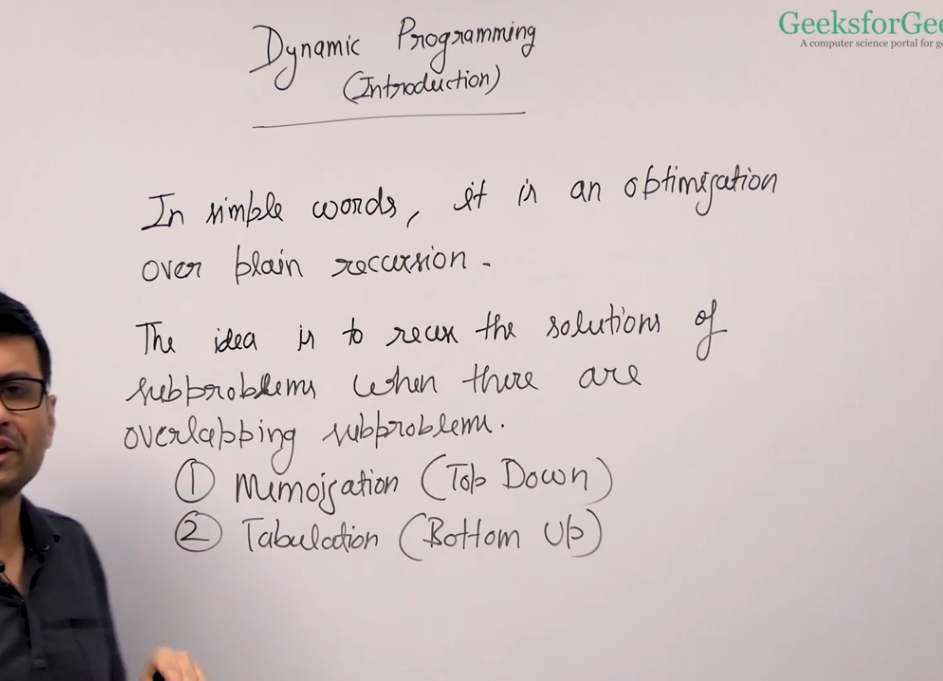 GeeksforGee
A computer science portal for ge
Dynamic Programming
(Introduction)
In simple words, it is an optimization
over plain recursion.
The idea is to reuse the solutions of
subproblems when there are
overlapping subproblems.
① Memoization (Top Down)
② Tabulation (Bottom Up)